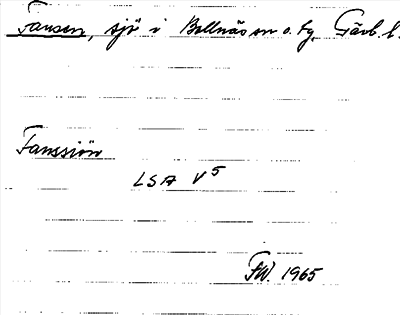 Fansen, sjö i Bollnäs sn o. tg. Gävb. l.
Fanssjön
LSA V5
FW. 1965